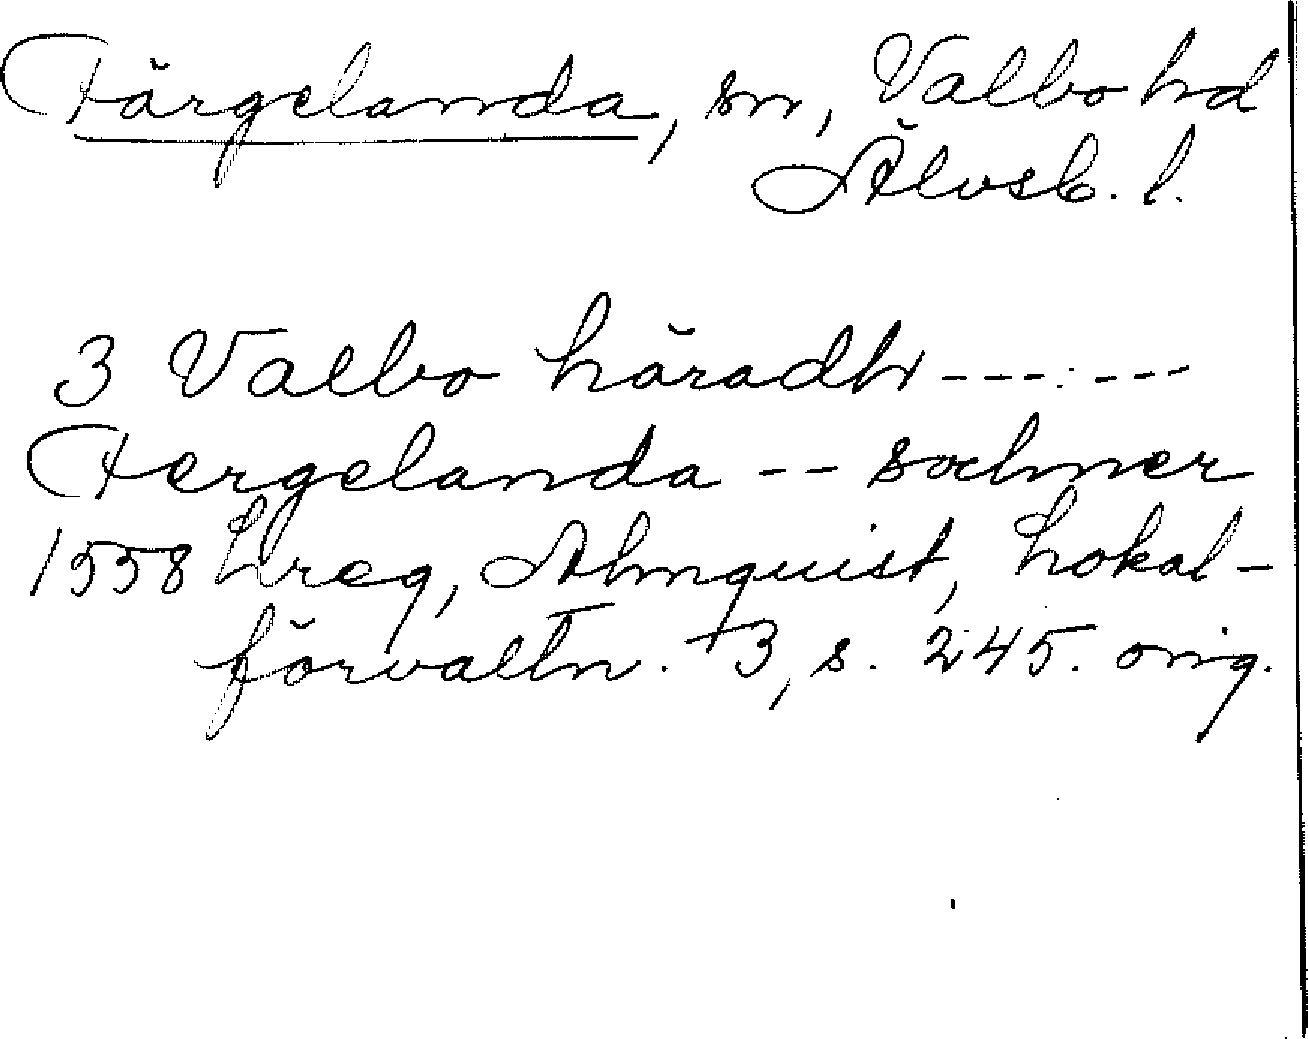 Färgelanda, sn, Valbo hd
Älvsb. l.
3 Valbo häradh ------
Fergelanda -- sochner
1558 Lreg, Almquist, Lokal-
förvaltn. 3, s. 245. orig.